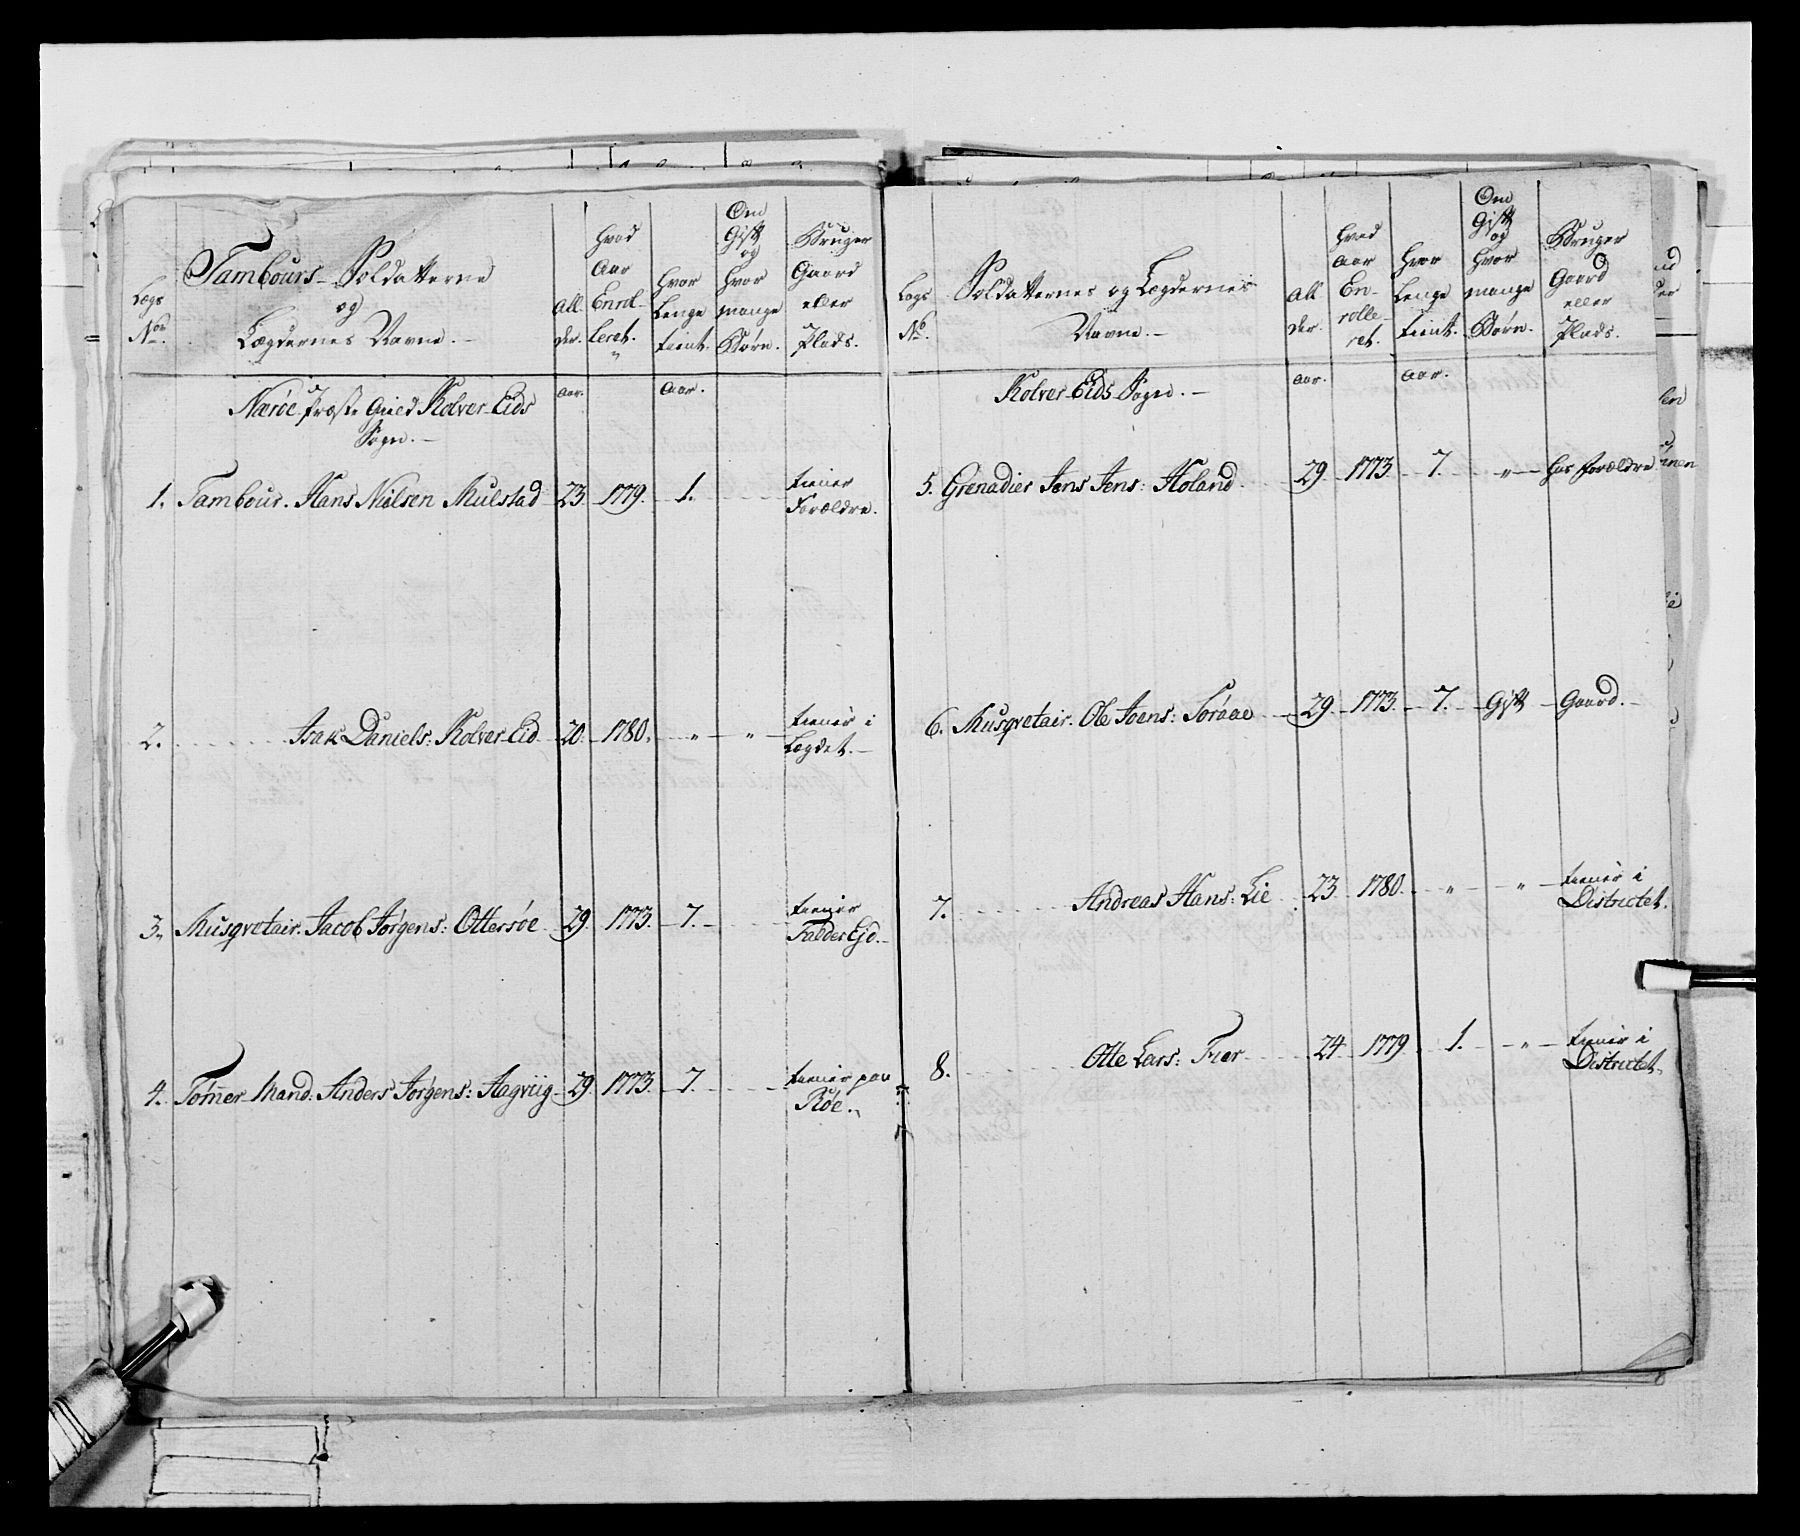 Lægs
No.
Tambours-Soldatterne
og
Lægdernes Navne.-
All
der.
Hvad
Aar
Enrol
leret.
Hvor
Lenge
tient.
Om
Gift
og
Hvor
mange
Børn.
Bruger
Gaard
eller
Plads.
Nærøe Præste Gield Kolver-Eids
Sogn.-
Aar.
Aar.
1. Tambour. Hans Nielsen Mulstad 23. 1779. 1. tiener
Forældre.
2. Isak Daniels: Kolver Eid 20. 1780. " " tiener i
Legdet.-
3. Musqvetair. Jacob Jørgens: Ottersøe 29. 1773. 7. tiener
Falder Ejd.
4. Tømer Mand. Anders Jørgens: Aagviig 29. 1773. 7. tiener paa
Røe.
Lægs
No.
Soldatternes og Lægdernes
Navne.-
All
der.
Hvad
Aar
En-
rolle-
ret.
Hvor
Lenge
tient.
Om
Gift
og
Hvor
mange
Børn.
Bruger
Gaard
eller
Plads.
Kolver-Eids Sogn.-
Aar.
Aar.
5. Grenadier Jens Jens: Holand 29. 1773. 7. " hos Forældre
6. Musqvetair. Ole Joens: Søraae 29. 1773. 7. Gift Gaard.
7. Andreas Hans: Lie 23 1780. " " tiener i
Districtet.
8. Otte Lars: Fier 24 1779 1. " tiener i
Districtet.